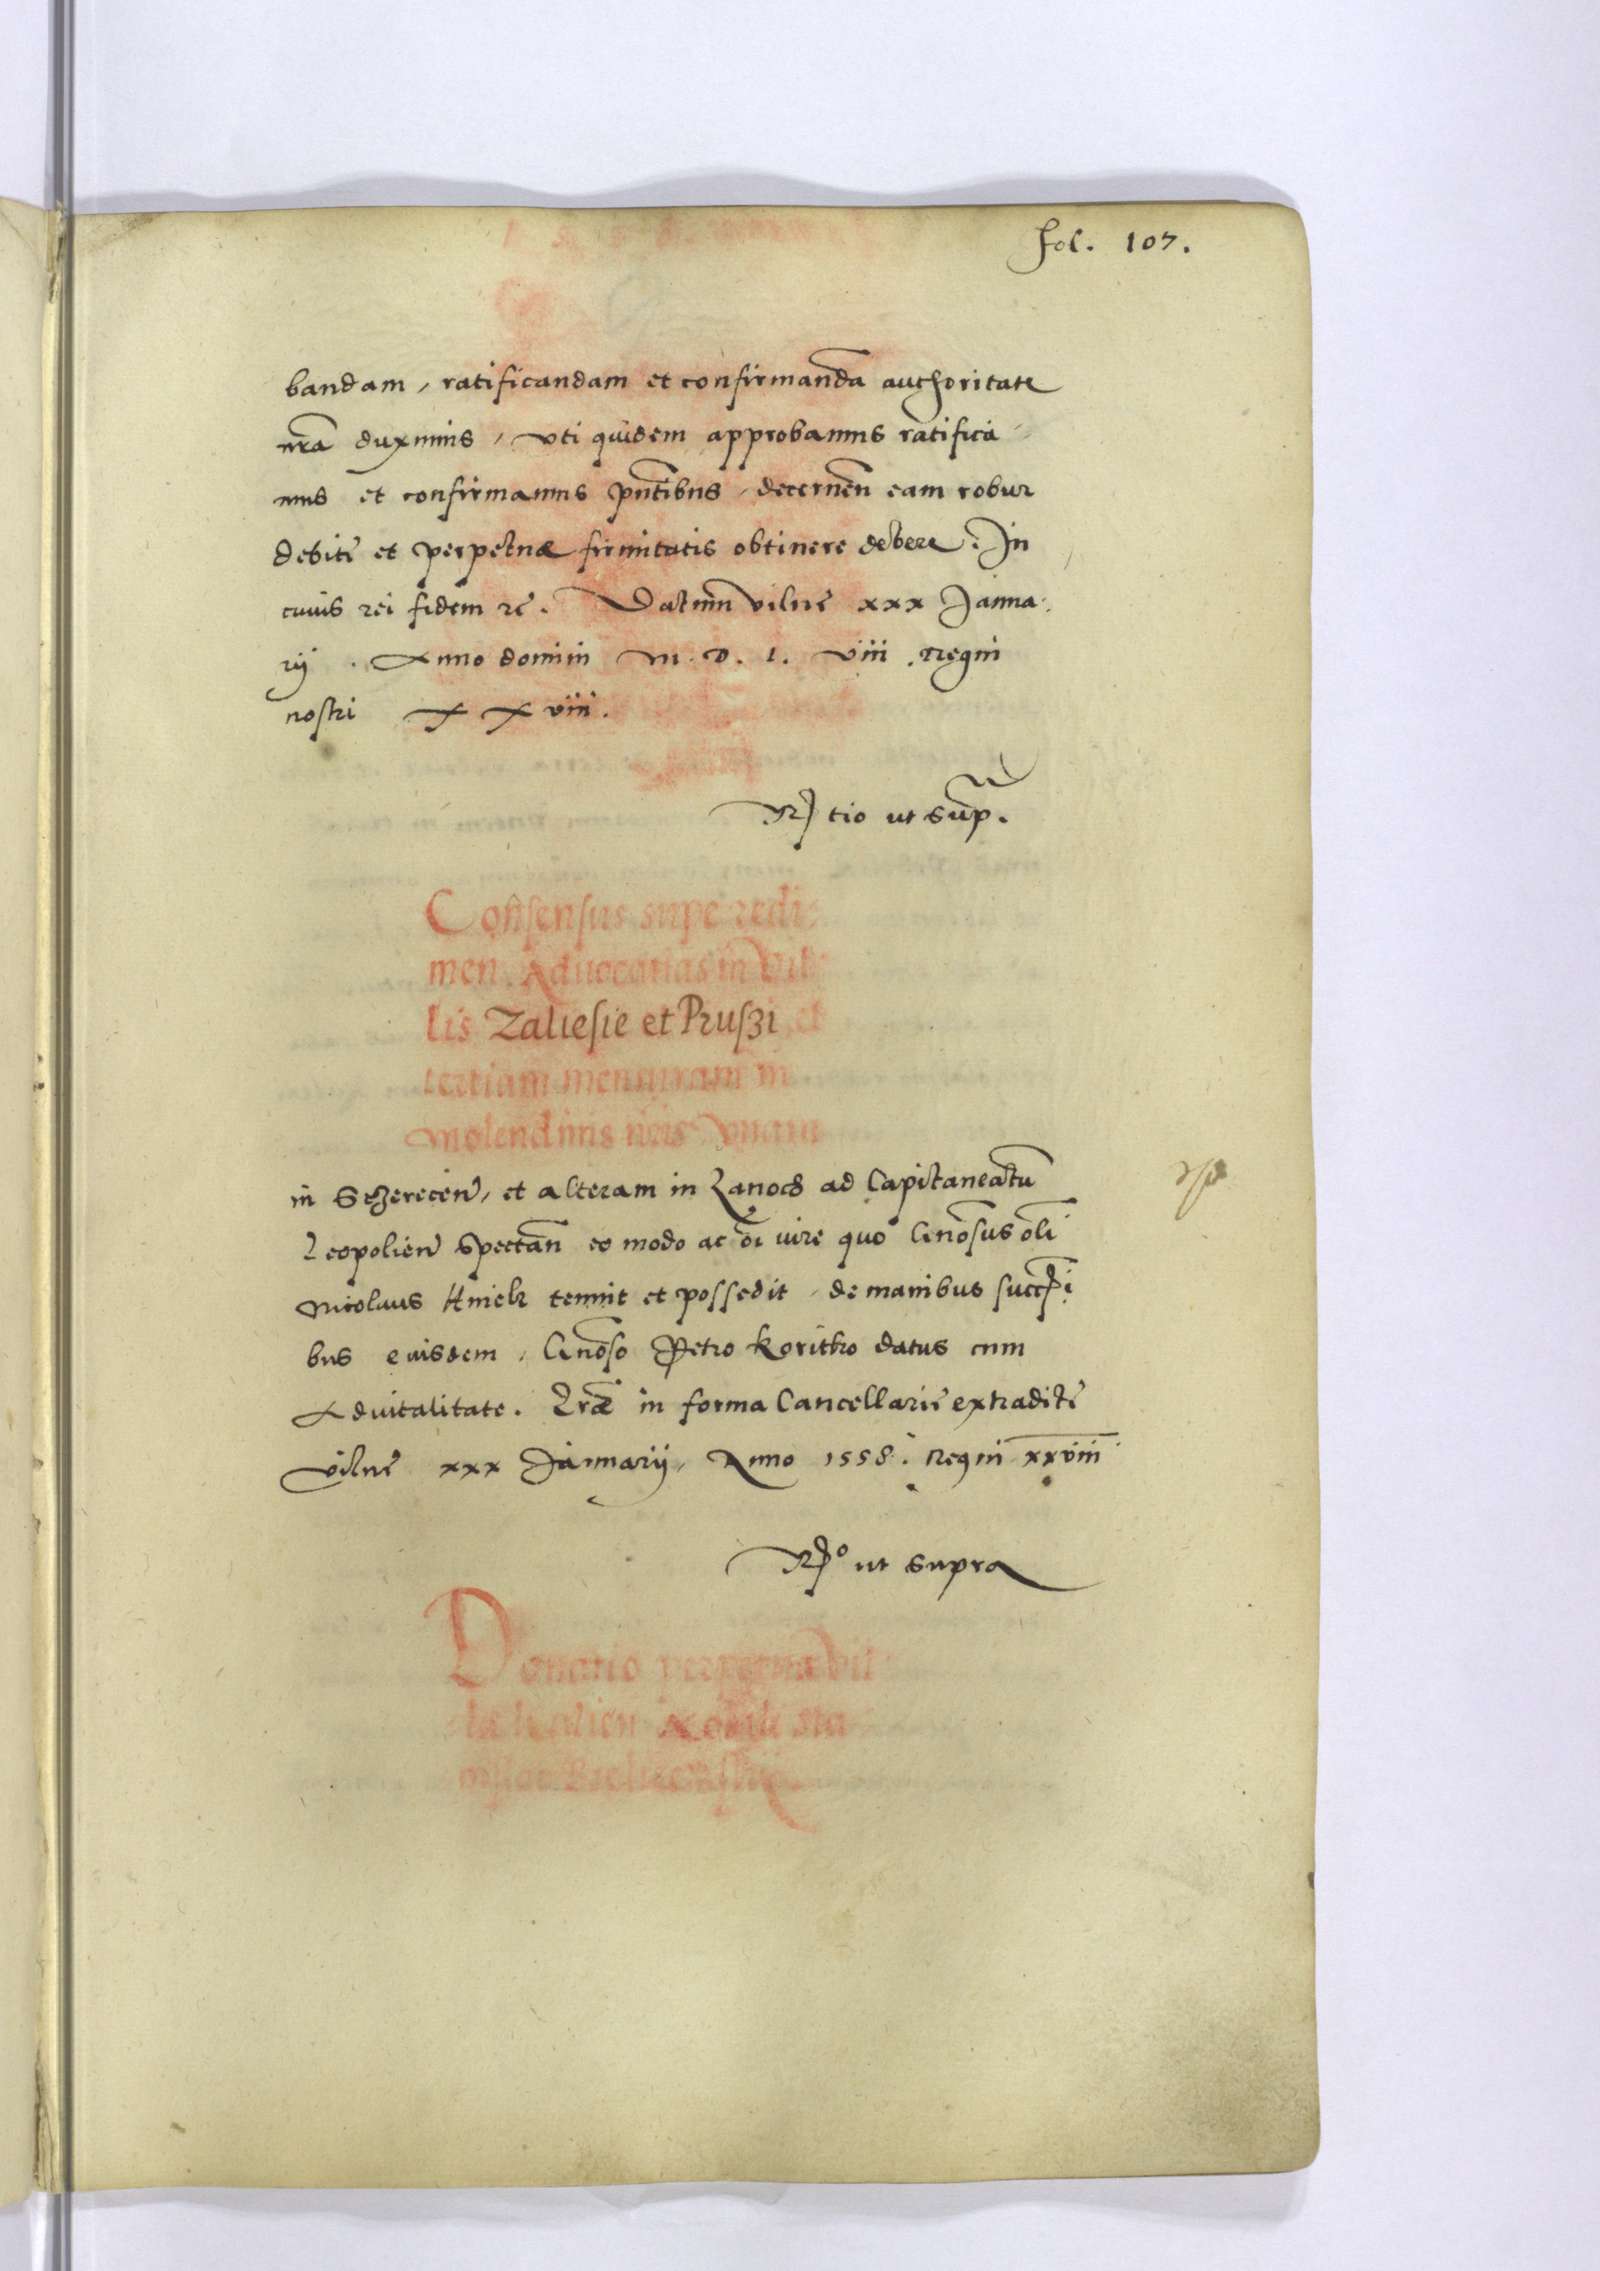 fol. 107.
bandam, ratificandam et confirmandā authoritate
nrā duximus, vti quidem approbamus ratifica
mus et confirmamus pntibus, decernen eam robur
debite et perpetuæ firmitatis obtinere debere. In
cuius rei fidem rc. Datum vilne xxx Janua
rij. Anno domini M. D. L. viii. Regni
nostri X X viii.
Rtio ut sup.
Consensus supe redi
men. Aduocatias in Vil
lis Zaliesie et Pruszi et
tertiam mensuram in
molendinis nris vnam
in Sczerecen, et alteram in Zanoch ad Capitaneatū
Leopolien spectan eo modo ac oi iure quo Gnosus oli
Nicolaus Hmielz tenuit et possedit, de manibus succ
bus eiusdem, Gnoso Petro Koritko datus cum
Aduitalitate. Lræ in forma Cancellarie extradite
vilne xxx Januarij, Anno 1558. Regni xxviii
Ro ut supra
Donatio perpetua vil
læ Nobili Sta